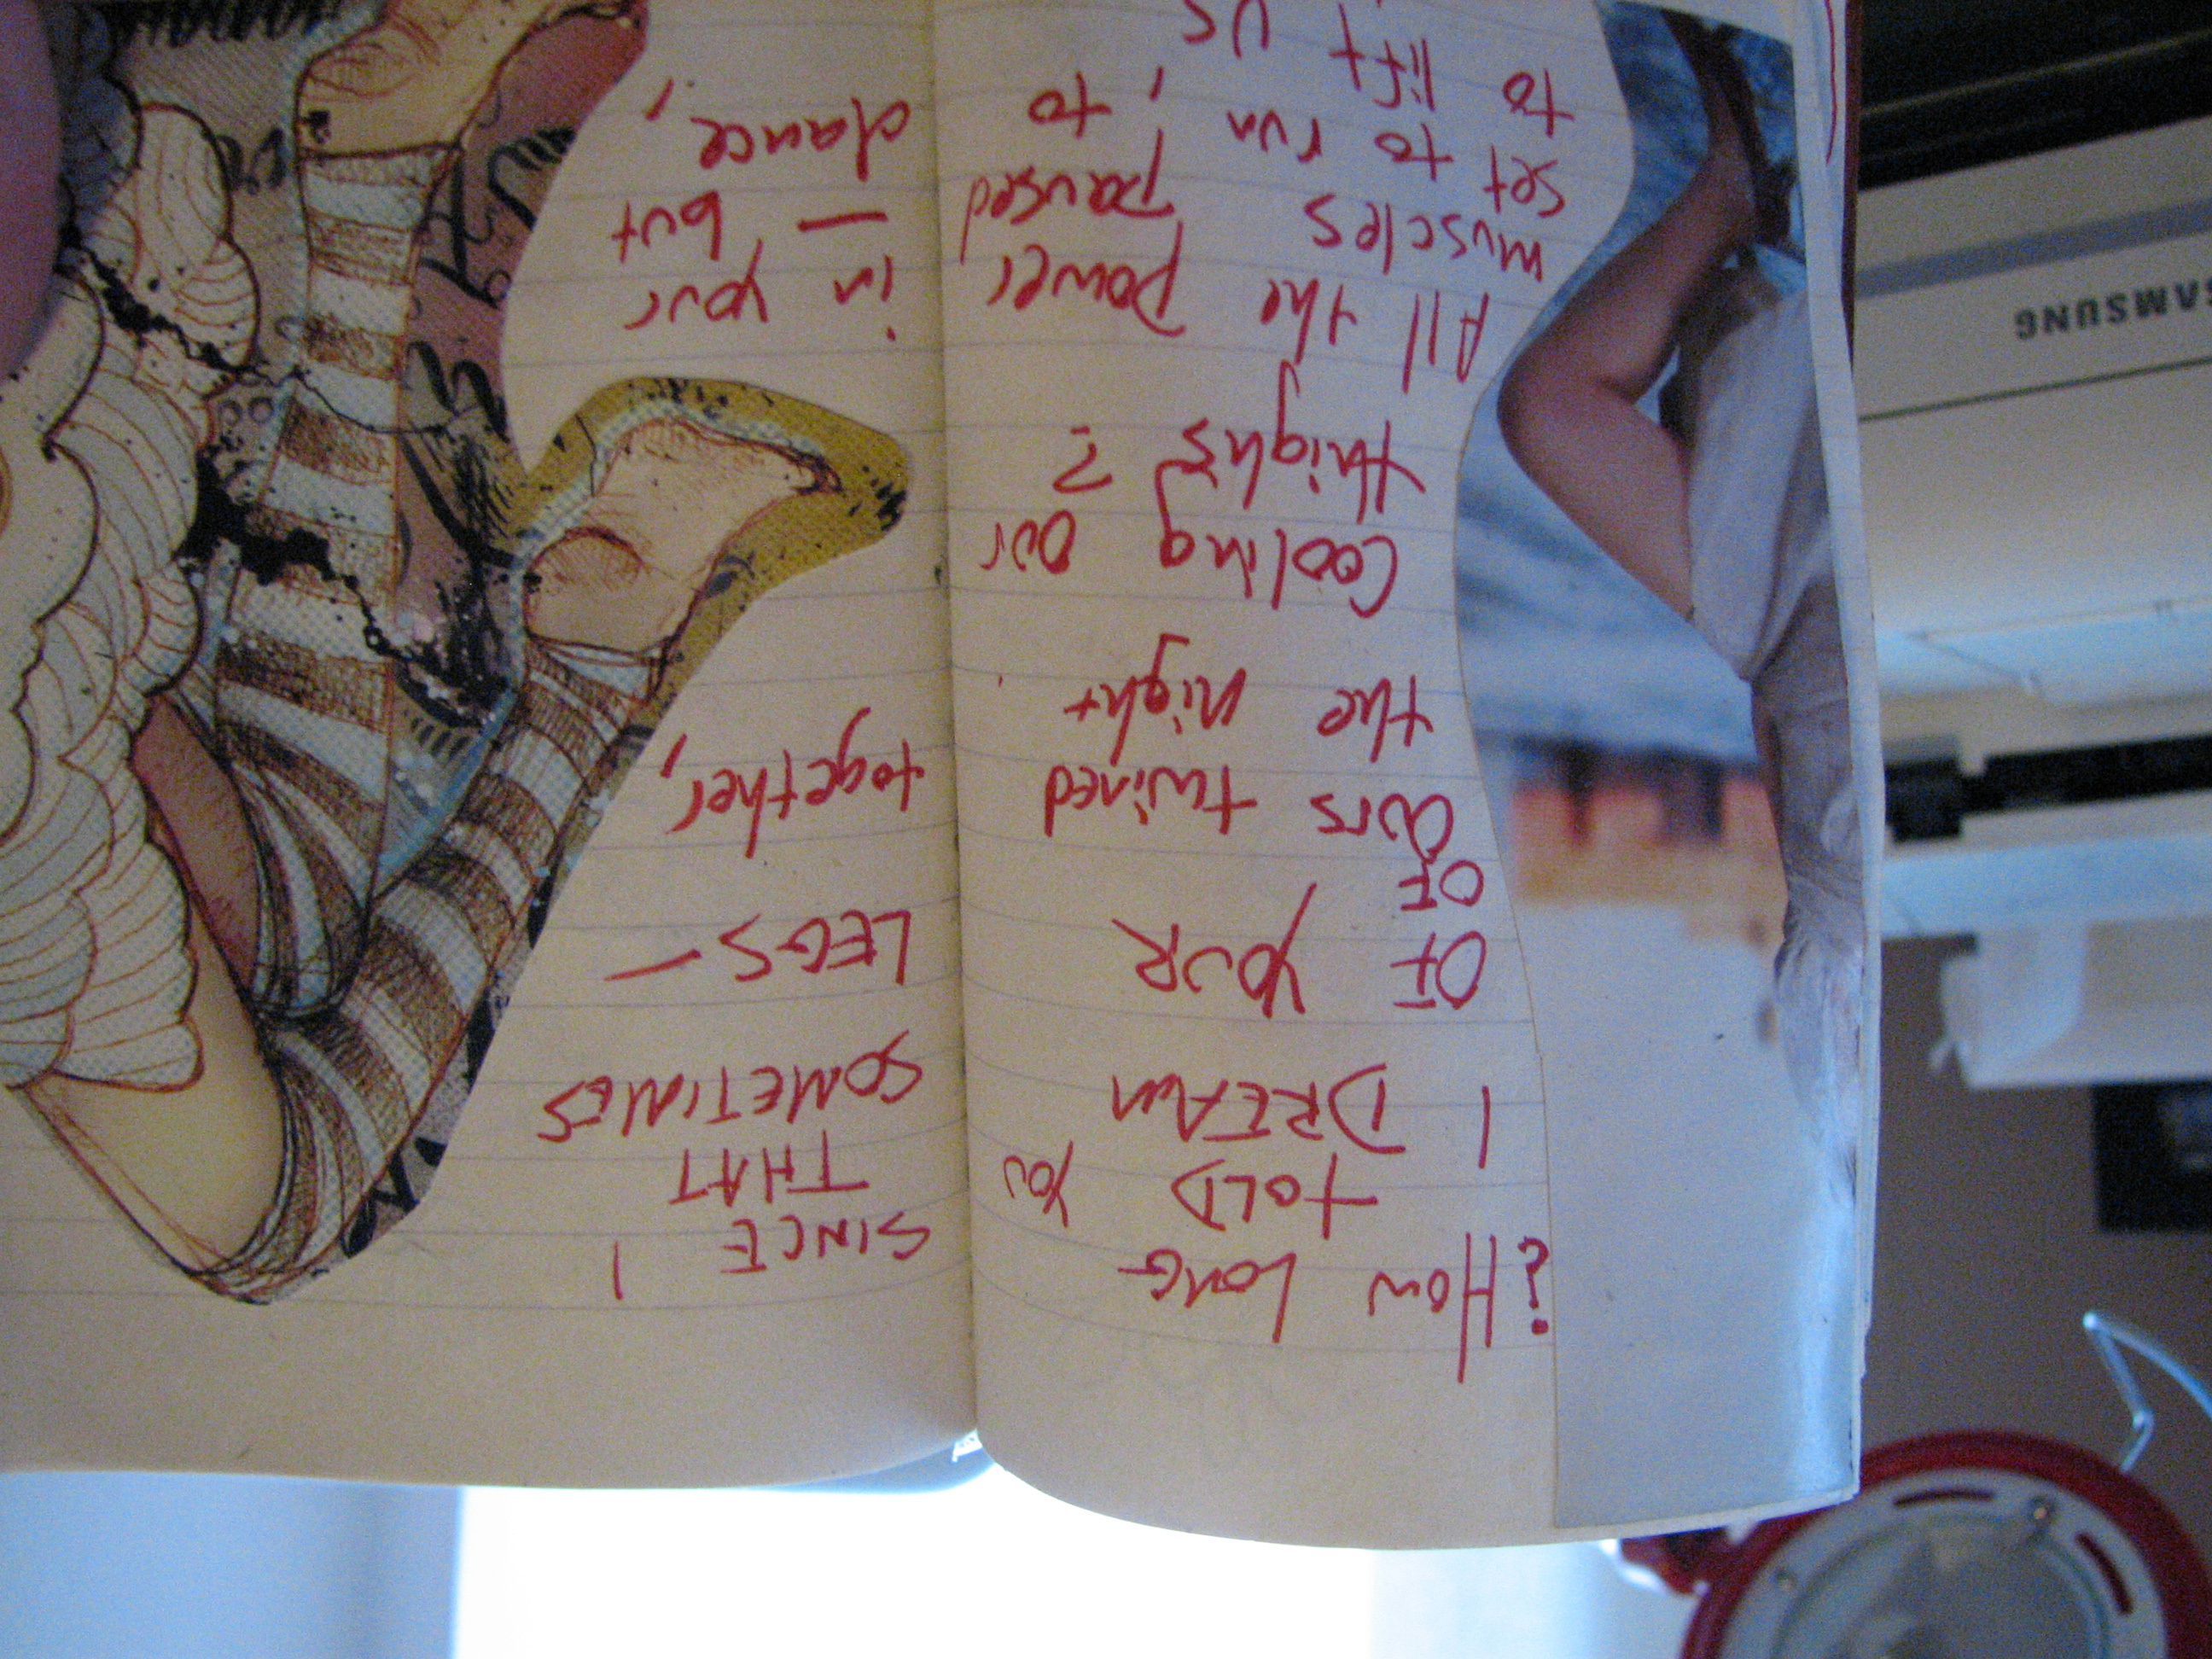 ¿HOW LONG SINCE I
TOLD YOU THAT
I DREAM SOMETIMES
OF YOUR LEGS —
OF
OURS twined together,
the night
Cooling our
thighs?
All the power in your
muscles paused — but
set to run, to dance,
to lift us
SAMSUNG